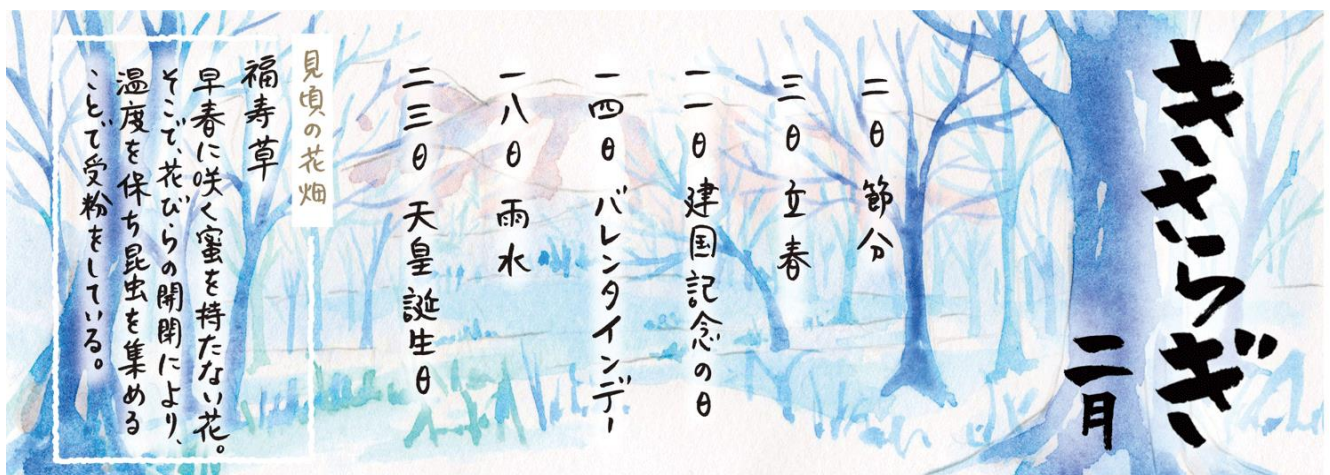 きさらぎ
二月
二日 節分
三日 立春
一一日 建国記念の日
一四日 バレンタインデー
一八日 雨水
二三日 天皇誕生日
見頃の花畑
福寿草
早春に咲く蜜を持たない花。
そこで、花びらの開閉により、
温度を保ち昆虫を集める
ことで受粉をしている。